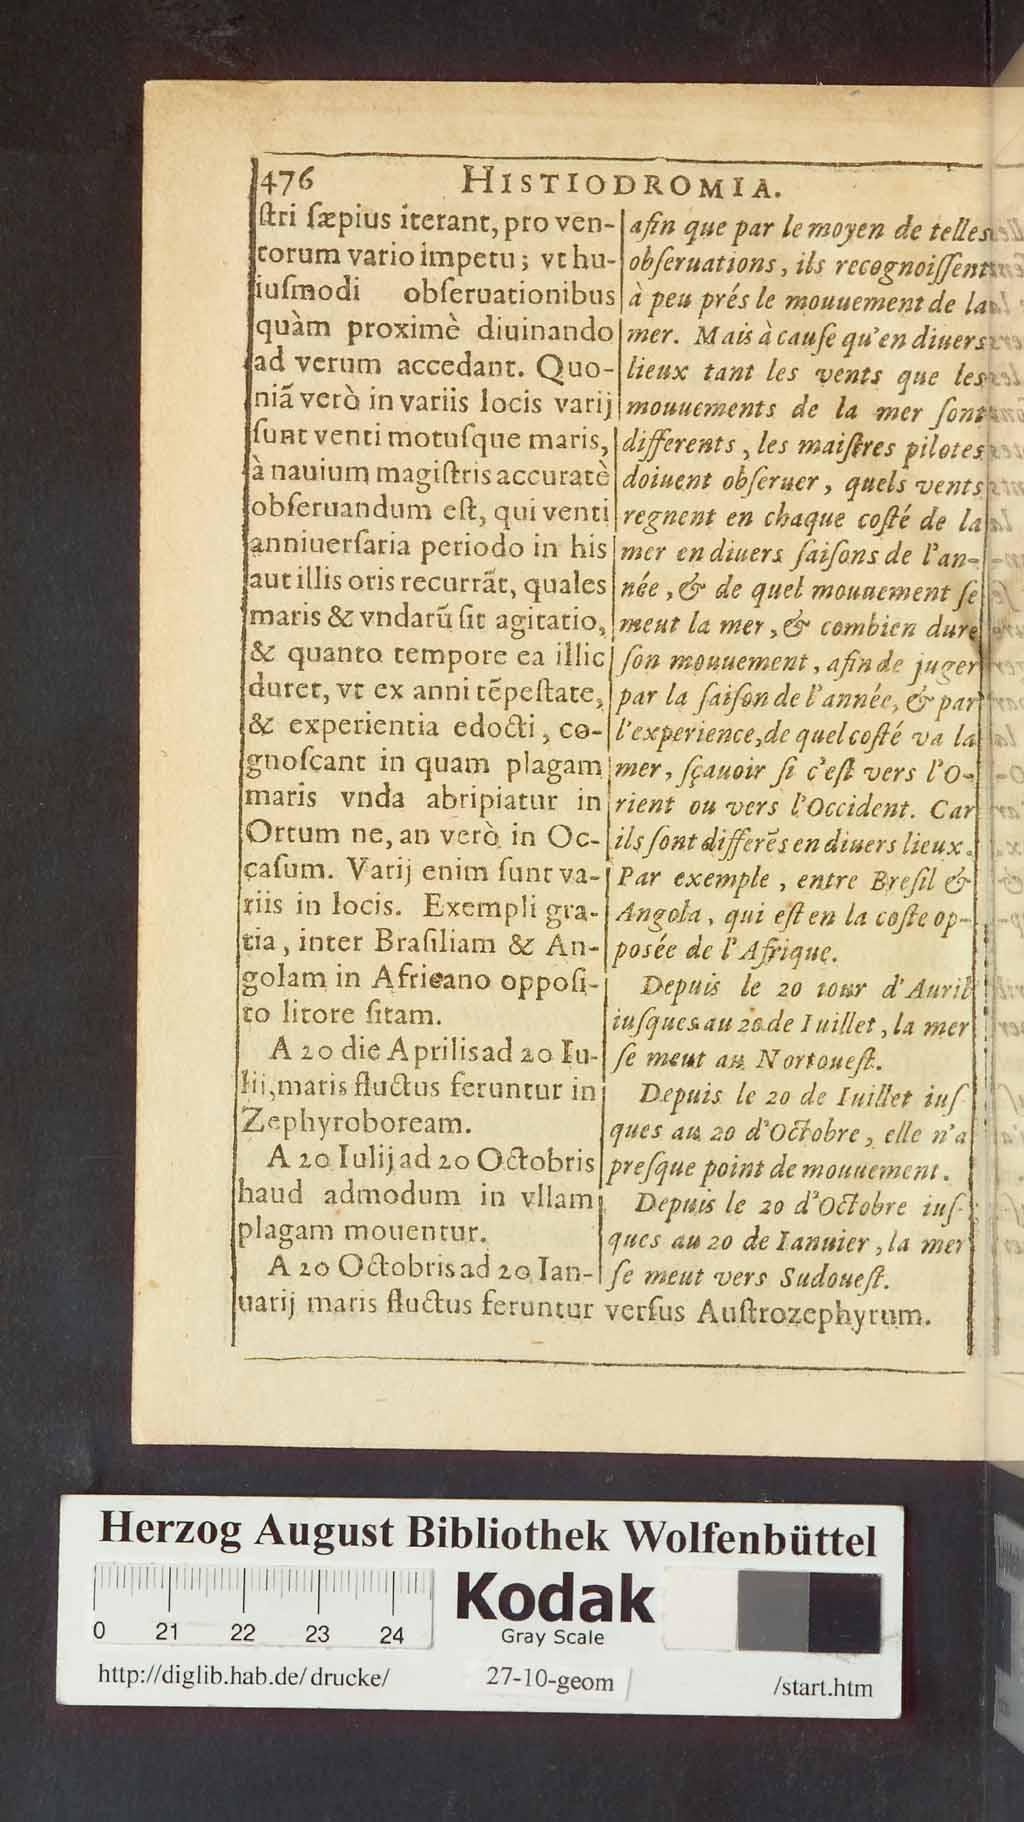 476 HISTIODROMIA.
ſtri ſæpius iterant, pro ven-
torum vario impetu; vt hu-
iuſmodi obſeruationibus
quàm proximè diuinando
ad verum accedant. Quo-
niã verò in variis locis varij
ſunt venti motuſque maris,
à nauium magiſtris accuratè
obſeruandum eſt, qui venti
anniuerſaria periodo in his
aut illis oris recurrãt, quales
maris & vndarũ ſit agitatio,
& quanto tempore ea illic
duret, vt ex anni tẽpeſtate,
& experientia edocti, co-
gnoſcant in quam plagam
maris vnda abripiatur in
Ortum ne, an verò in Oc-
caſum. Varij enim ſunt va-
riis in locis. Exempli gra-
tia, inter Braſiliam & An-
golam in Africano oppoſi-
to litore ſitam.
A 20 die Aprilis ad 20 Iu-
lii, maris fluctus feruntur in
Zephyroboream.
A 20 Iulij ad 20 Octobris
haud admodum in vllam
plagam mouentur.
A 20 Octobris ad 20 Ian-
uarij maris fluctus feruntur verſus Auſtrozephyrum.
afin que par le moyen de telles
obſeruations, ils recognoiſſent
à peu prés le mouuement de la
mer. Mais à cauſe qu'en diuers
lieux tant les vents que les
mouuements de la mer ſont
differents, les maiſtres pilotes
doiuent obſeruer, quels vents
regnent en chaque coſté de la
mer en diuers ſaiſons de l'an-
née, & de quel mouuement ſe
meut la mer, & combien dure
ſon mouuement, afin de juger
par la ſaiſon de l'année, & par
l'experience, de quel coſté va la
mer, ſçauoir ſi c'eſt vers l'O-
rient ou vers l'Occident. Car
ils ſont differẽs en diuers lieux.
Par exemple, entre Breſil &
Angola, qui eſt en la coſte op-
posée de l'Afrique.
Depuis le 20 iour d'Auril
iuſques au 20 de Iuillet, la mer
ſe meut au Nortoueſt.
Depuis le 20 de Iuillet iuſ
ques au 20 d'Octobre, elle n'a
preſque point de mouuement.
Depuis le 20 d'Octobre iuſ-
ques au 20 de Ianuier, la mer
ſe meut vers Sudoueſt.
Herzog August Bibliothek Wolfenbüttel
0 21 22 23 24
Kodak
Gray Scale
http://diglib.hab.de/drucke/ 27-10-geom /start.htm